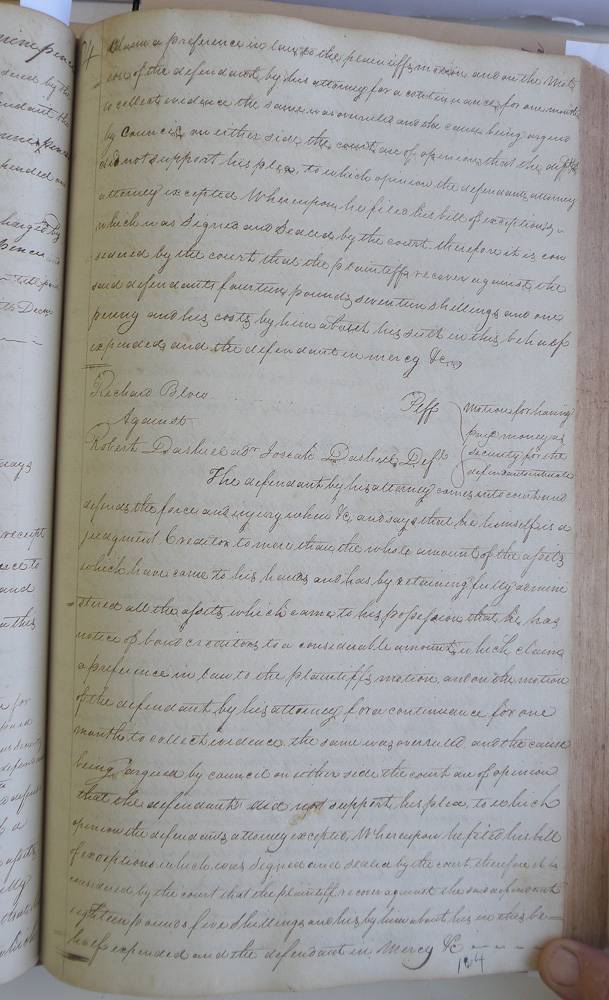 claim a preference in law to the plaintiffs motion and on the moti
on of the defendant by his attorney for a continuance for one month
to collect evidence the same was overruled and the cause being argued
by Council on either side the court are of opinion that the defdt
did not support his plea, to which opinion the defendants attorney
attorney excepted Whereupon he filed his bill of exceptions
which was Signed and Sealed by the court therefore it is con
sidered by the court that the plaintiff recover against the
said defendant fourteen pounds seventeen shillings and one
penny and his costs by him about his suit in this behalf
expended and the defendant in mercy &c
Richard Blow
Plff
Against
Robert Dashiel adr Josiah Dashiel Deft
motion for having
paid money as
security for the
defendants intestate
The defendant by his attorney comes into court and
defends the force and injury when &c, and says that he himself is a
judgment Creditor to more than the whole amount of the assets
which have come to his hands and has by retaining fully admini
stered all the assets which came to his possession that he has
notice of bond creditors to a considerable amount which claim
a preference in law to the plaintiffs motion and on the motion
of the defendant by his attorney for a continuance for one
month to collect evidence the same was overruled and the cause
being argued by council on either side the court are of opinion
that the defendant did not support his plea, to which
opinion the defendants attorney excepted, Whereupon he filed his bill
of exceptions which was Signed and sealed by the court therefore it is
considered by the court that the plaintiff recover against the said defendant
eighteen pounds five Shillings and his by him about his in this be
half expended and the defendant in Mercy &c
164